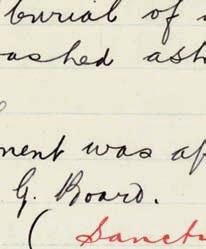 burial of
washed ash
ment was ap
G. Board.
( Sanctu